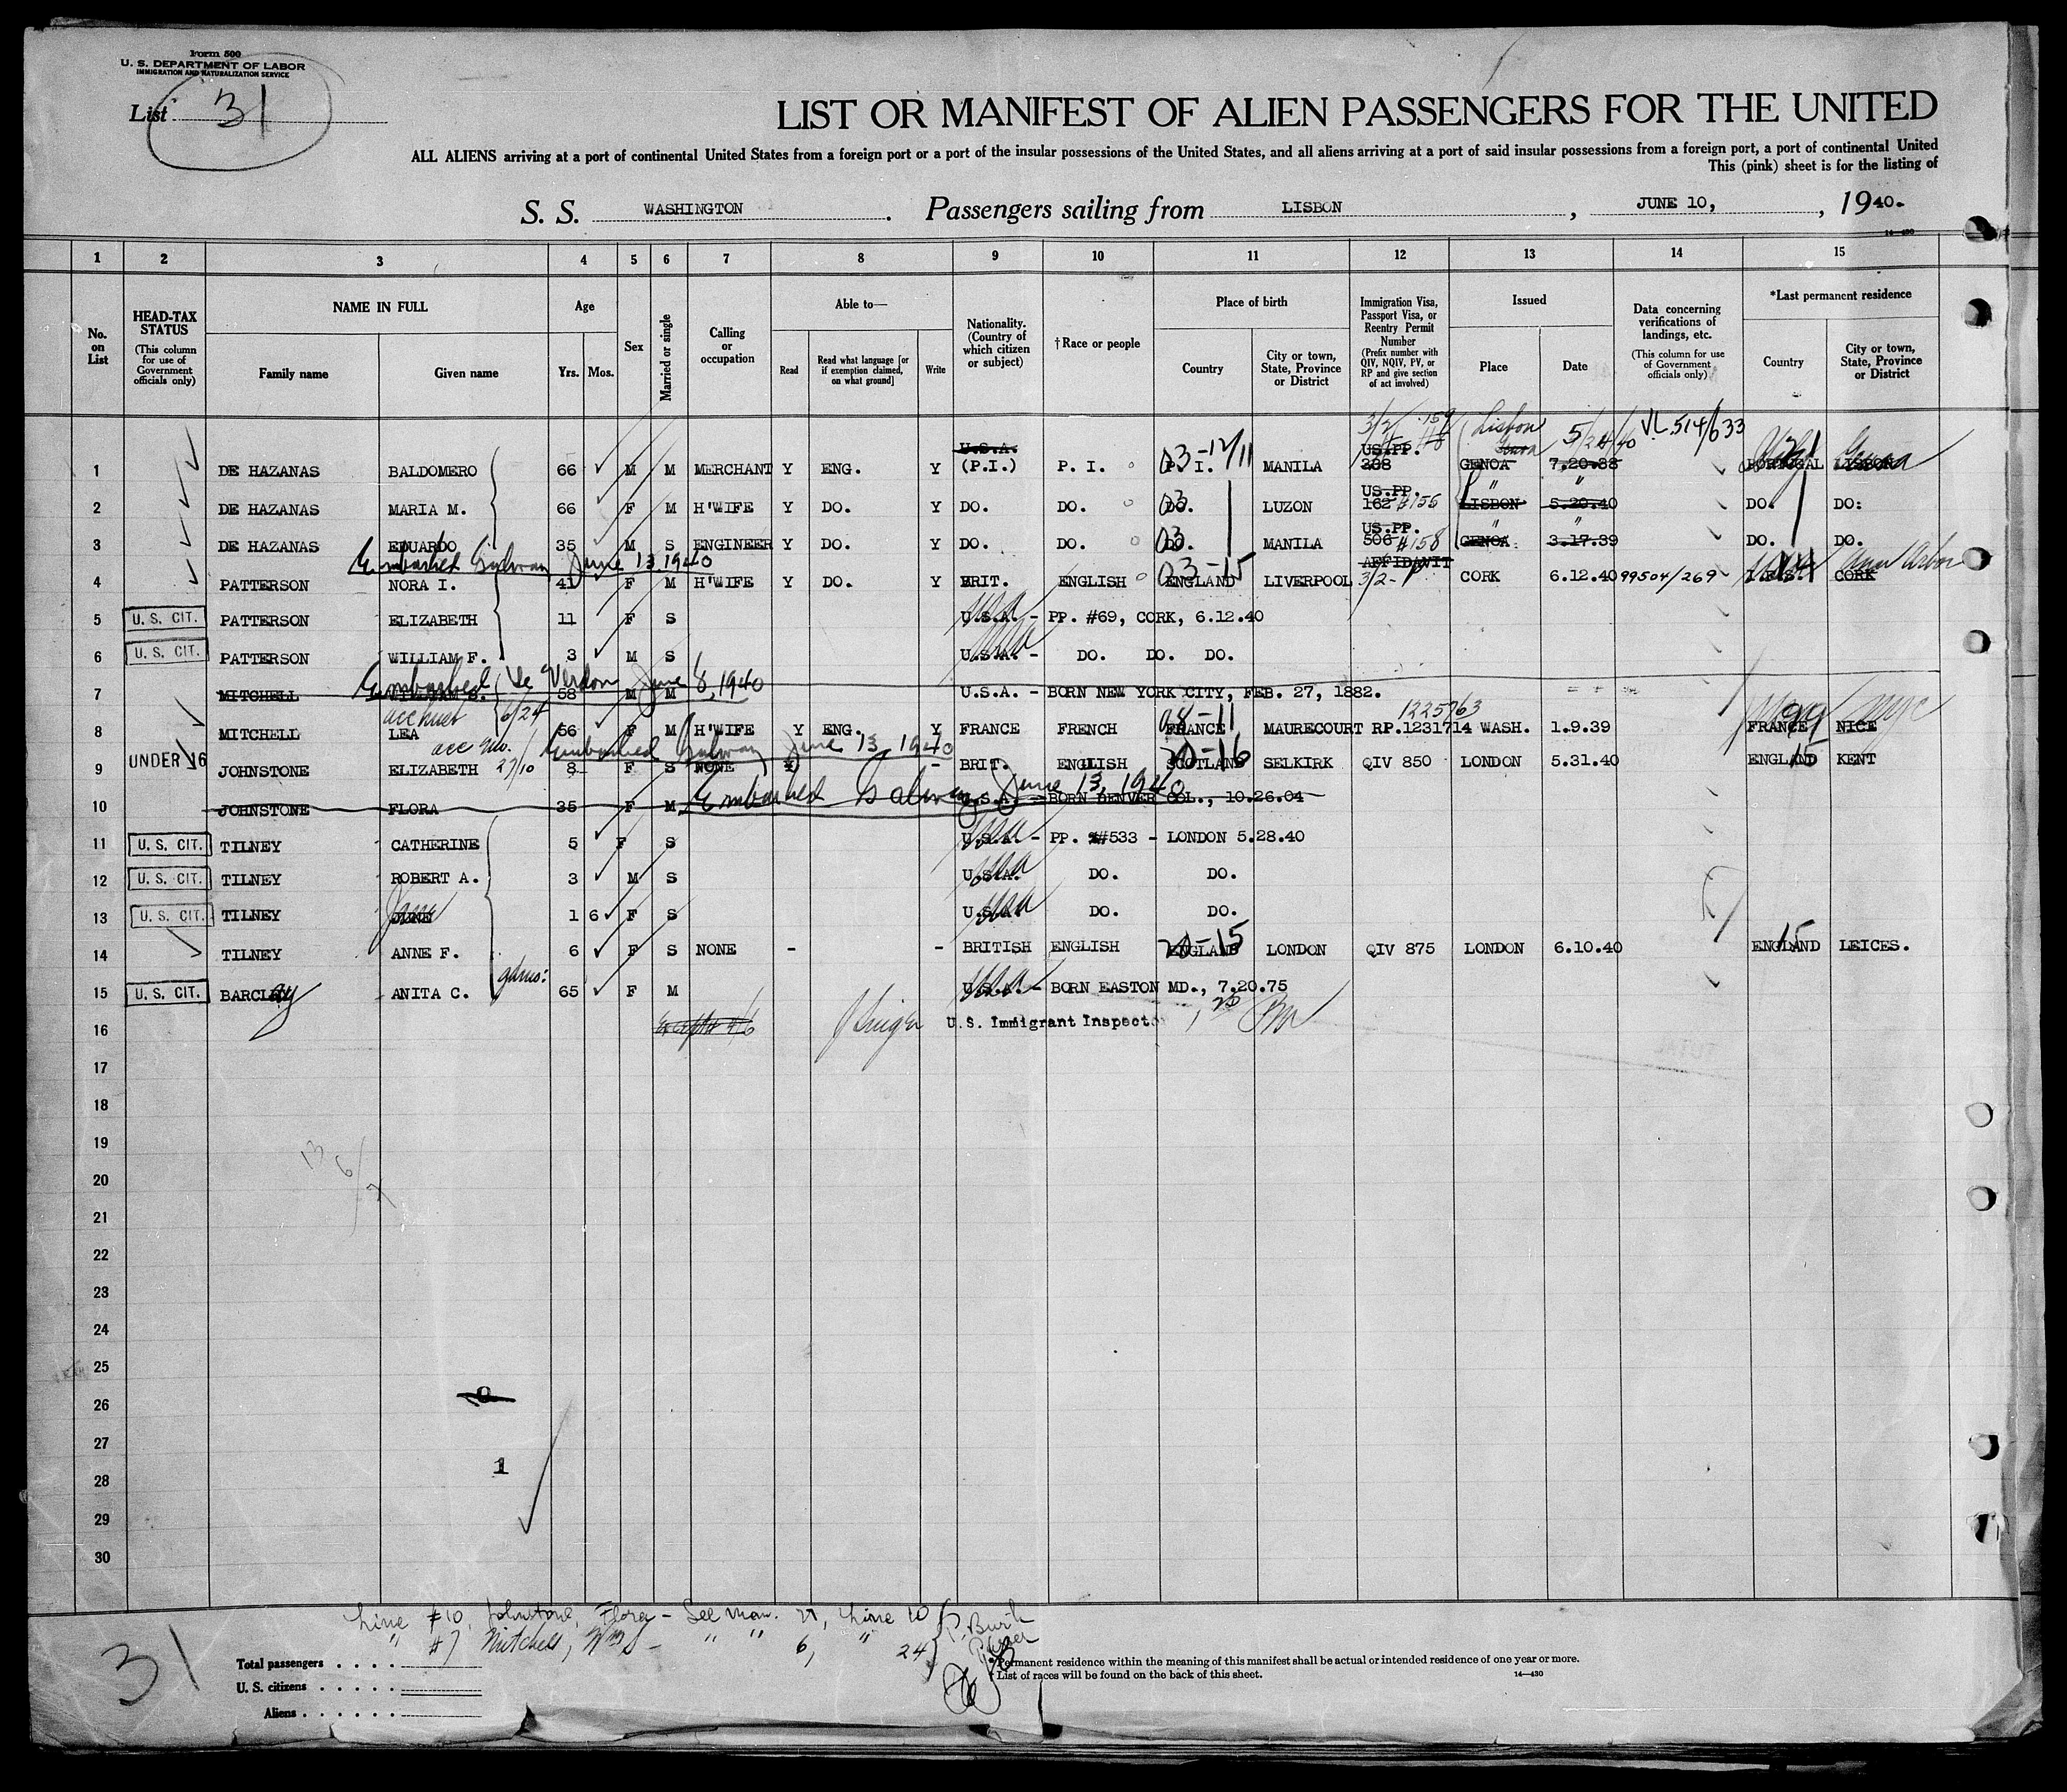 Form 500
U. S. DEPARTMENT OF LABOR
IMMIGRATION AND NATURALIZATION SERVICE
List 31
LIST OR MANIFEST OF ALIEN PASSENGERS FOR THE UNITED
ALL ALIENS arriving at a port of continental United States from a foreign port or a port of the insular possessions of the United States, and all aliens arriving at a port of said insular possessions from a foreign port, a port of continental United
This (pink) sheet is for the listing of
S. S. WASHINGTON . Passengers sailing from LISBON , JUNE 10, , 1940.
14—430
1 2 3 4 5 6 7 8 9 10 11 12 13 14 15
No. on List
HEAD-TAX STATUS (This column for use of Government officials only)
NAME IN FULL
Family name Given name
Age
Yrs. Mos.
Sex
Married or single
Calling or occupation
Able to—
Read Read what language [or if exemption claimed, on what ground] Write
Nationality. (Country of which citizen or subject)
†Race or people
Place of birth
Country City or town, State, Province or District
Immigration Visa, Passport Visa, or Reentry Permit Number (Prefix number with QIV, NQIV, PV, or RP and give section of act involved)
Issued
Place Date
Data concerning verifications of landings, etc. (This column for use of Government officials only)
*Last permanent residence
Country City or town, State, Province or District
3/2 .159 Lisbon 5/24/40 VL 514/633
U.S.A. US.PP. Genoa
1 DE HAZANAS BALDOMERO 66 M M MERCHANT Y ENG. Y (P.I.) P. I. 03-12/11 P. I. MANILA 268 GENOA 7.20.38 PORTUGAL LISBON Genoa
US.PP. " "
2 DE HAZANAS MARIA M. 66 F M H'WIFE Y DO. Y DO. DO. 03 DO. LUZON 162 #156 LISBON 5.20.40 DO. DO:
US.PP. " "
3 DE HAZANAS EDUARDO 35 M S ENGINEER Y DO. Y DO. DO. 03 DO. MANILA 506 #158 GENOA 3.17.39 DO. DO.
Embarked Galway June 13, 1940 AFFIDAVIT
4 PATTERSON NORA I. 41 F M H'WIFE Y DO. Y BRIT. ENGLISH 03-15 ENGLAND LIVERPOOL 3/2- CORK 6.12.40 99504/269 CORK Ann Arbor
5 U. S. CIT. PATTERSON ELIZABETH 11 F S U.S.A. - PP. #69, CORK, 6.12.40
6 U. S. CIT. PATTERSON WILLIAM F. 3 M S U.S.A. - DO. DO. DO.
Embarked Le Verdon June 8, 1940
7 MITCHELL WILLIAM S. 58 M M U.S.A. - BORN NEW YORK CITY, FEB. 27, 1882.
acc hus 6/24 1225763
8 MITCHELL LEA 56 F M H'WIFE Y ENG. Y FRANCE FRENCH 08-11 FRANCE MAURECOURT RP.1231714 WASH. 1.9.39 FRANCE 99 NICE NYC
acc mo. 27/10 Embarked Galway June 13, 1940
9 UNDER 16 JOHNSTONE ELIZABETH 8 F S NONE - BRIT. ENGLISH 20-16 SCOTLAND SELKIRK QIV 850 LONDON 5.31.40 ENGLAND 15 KENT
Embarked Galway June 13, 1940
10 JOHNSTONE FLORA 35 F M U.S.A. - BORN DENVER COL., 10.26.04
11 U. S. CIT. TILNEY CATHERINE 5 F S U.S.A. - PP. #533 - LONDON 5.28.40
12 U. S. CIT. TILNEY ROBERT A. 3 M S U.S.A. DO. DO.
13 U. S. CIT. TILNEY Jane 1 6 F S U.S.A. DO. DO.
14 TILNEY ANNE F. 6 F S NONE - - BRITISH ENGLISH 20-15 ENGLAND LONDON QIV 875 LONDON 6.10.40 ENGLAND 15 LEICES.
gdmo:
15 U. S. CIT. BARCLAY ANITA C. 65 F M U.S.A. - BORN EASTON MD., 7.20.75
16 U.S. Immigrant Inspector
17
18
19
20
21
22
23
24
25
26 0
27
28 1
29
30
13
6
7
Line #10, Johnstone, Flora - See Man. 27, Line 10
" #7 Mitchell, Wm S - " " 6, " 24
31
Total passengers . . . .
U. S. citizens . . . . .
Aliens . . . . . .
*Permanent residence within the meaning of this manifest shall be actual or intended residence of one year or more.
†List of races will be found on the back of this sheet. 14—430